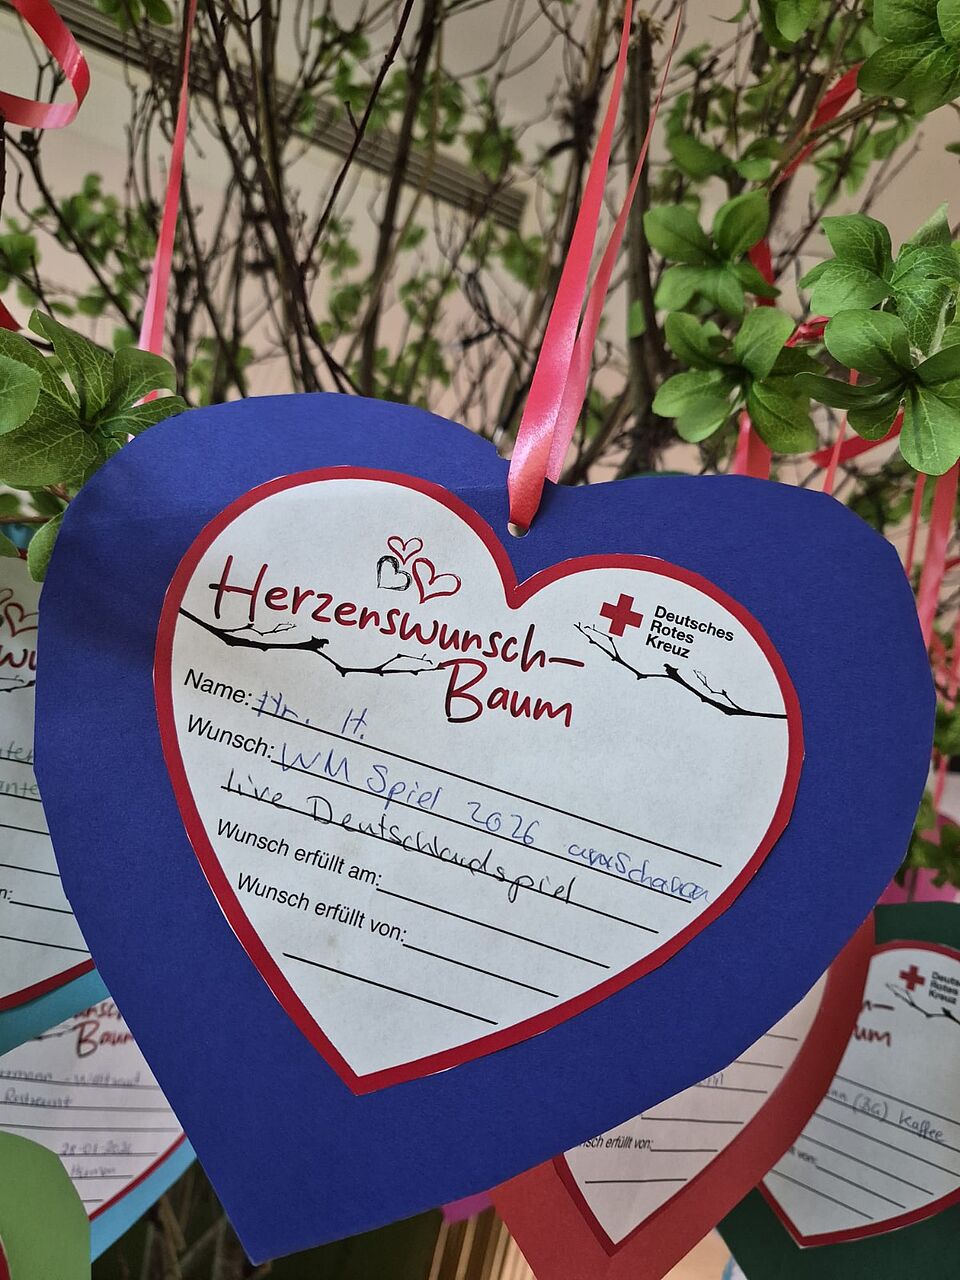 Herzenswunsch-
Baum
Deutsches
Rotes
Kreuz
Name: Hr. H.
Wunsch: WM Spiel 2026 anschauen
live Deutschlandspiel
Wunsch erfüllt am:
Wunsch erfüllt von:
Baum
28-01-2026
sch erfüllt von:
Deutsc
Rotes
Kreuz
um
(BG) Kaffee
von: